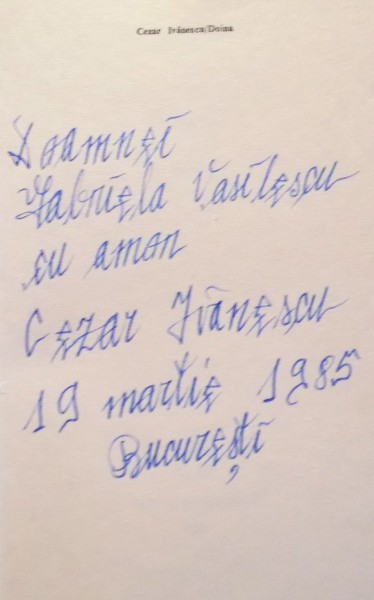 Cezar Ivănescu/Doina
Doamnei
Gabriela Vasilescu
cu amor
Cezar Ivănescu
19 martie 1985
București